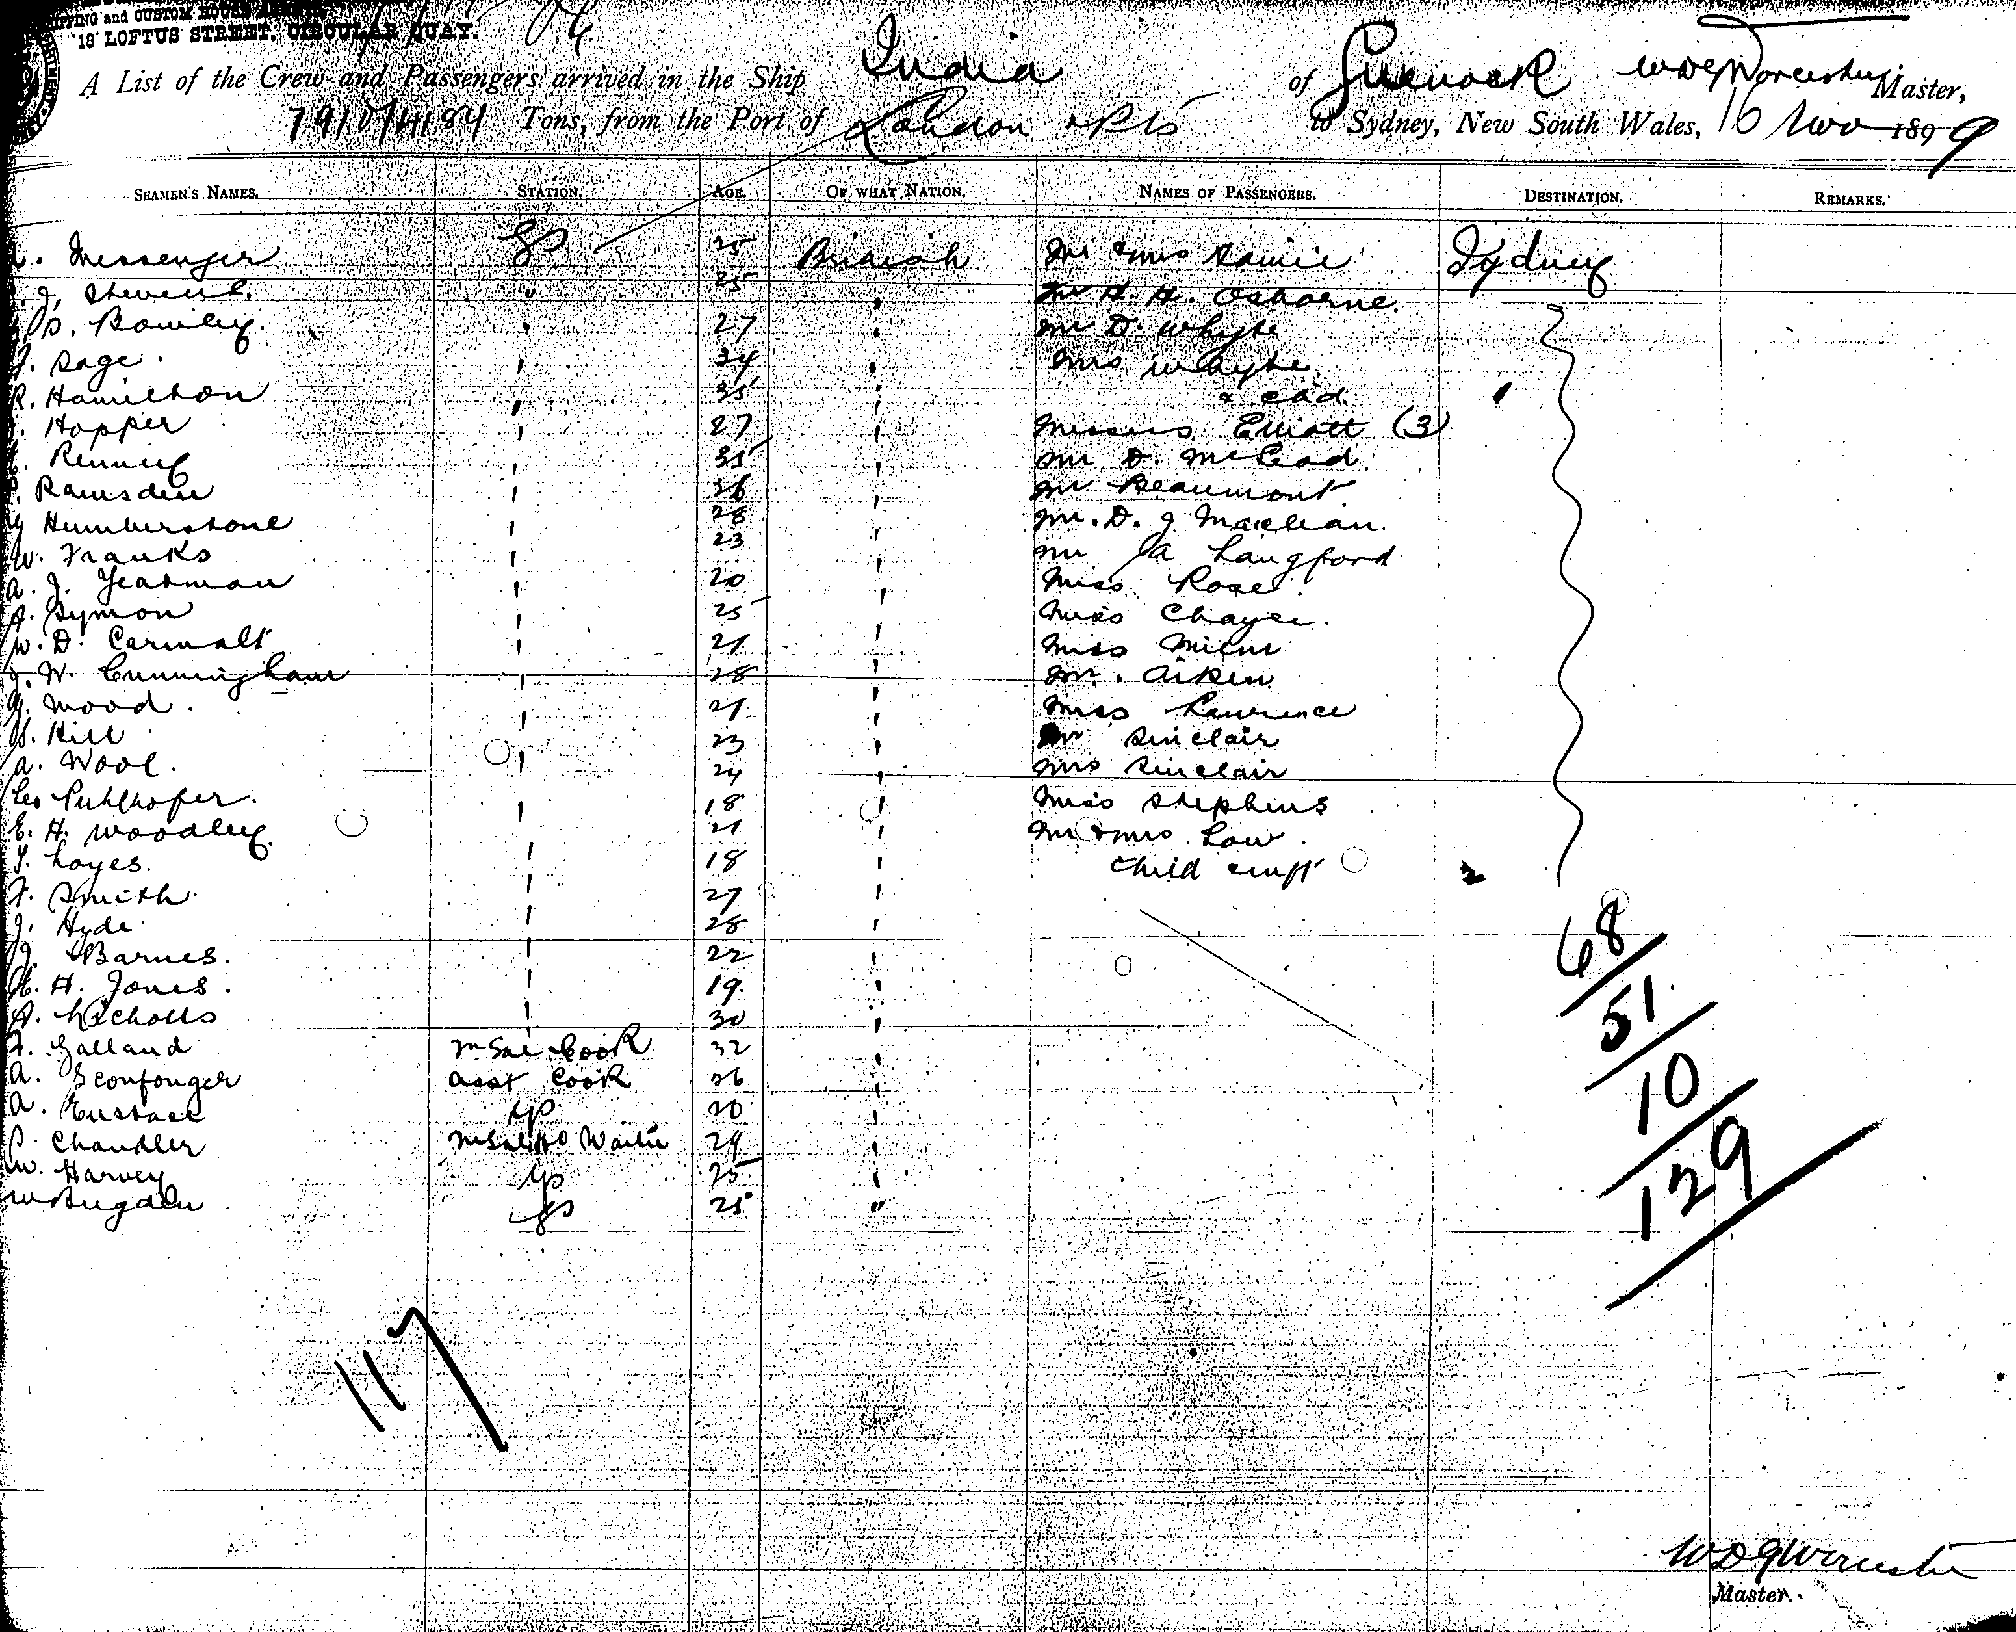 SHIPPING and CUSTOM HOUSE
18 LOFTUS STREET, CIRCULAR QUAY.
A List of the Crew and Passengers arrived in the Ship India of Greenock W D G Worcester Master,
7910/4184 Tons, from the Port of London & Pts to Sydney, New South Wales, 16 Nov 1899
SEAMEN'S NAMES. STATION. AGE. OF WHAT NATION. NAMES OF PASSENGERS. DESTINATION. REMARKS.
Messenger GS 25 British Mr & Mrs Sydney
J. Stevens " 25 " Mr H. H. Osborne.
Bowley. " 27 " Mr D. Whyte
J. Sage. " 34 " Mrs Whyte
R. Hamilton " 35 " & chd.
Hopper " 27 " Misses Elliott (3)
Renney " 35 " Mr D. McLeod.
Ramsden " 26 " Mr Beaumont
Humberstone " 28 " Mr. D. J Maclean.
W. Franks " 23 " Mr A Langford
A. J. Yeatman " 20 " Miss Rose
A. Symon " 25 " Miss
W. D. Carwalt " 21 " Miss Milne
J. W. Cunningham " 28 " Mr. Aiken
G. Wood. " 21 " Miss Lawrence
H. Hill " 23 " Mr Sinclair
A. Wool. " 24 " Mrs Sinclair
Geo Puhlhofer. " 18 " Miss Stephens
E. H. Woodley. " 21 " Mr & Mrs Low.
T. Loyes. " 18 " Child & inft
F. Smith. " 27 "
J. Hyde. " 28 "
J. Barnes. " 22 " 68
H. H. Jones. " 19 " 51
A. Nicholls " 30 " 10
F. Galland Cook 32 " 129
A. Sconfonger Asst Cook 26 "
A. Eustace GS 20 "
P. Chandler Waiter 29 "
W. Harvey GS 25 "
W Bugden GS 25 "
117
W D G Worcester
Master.